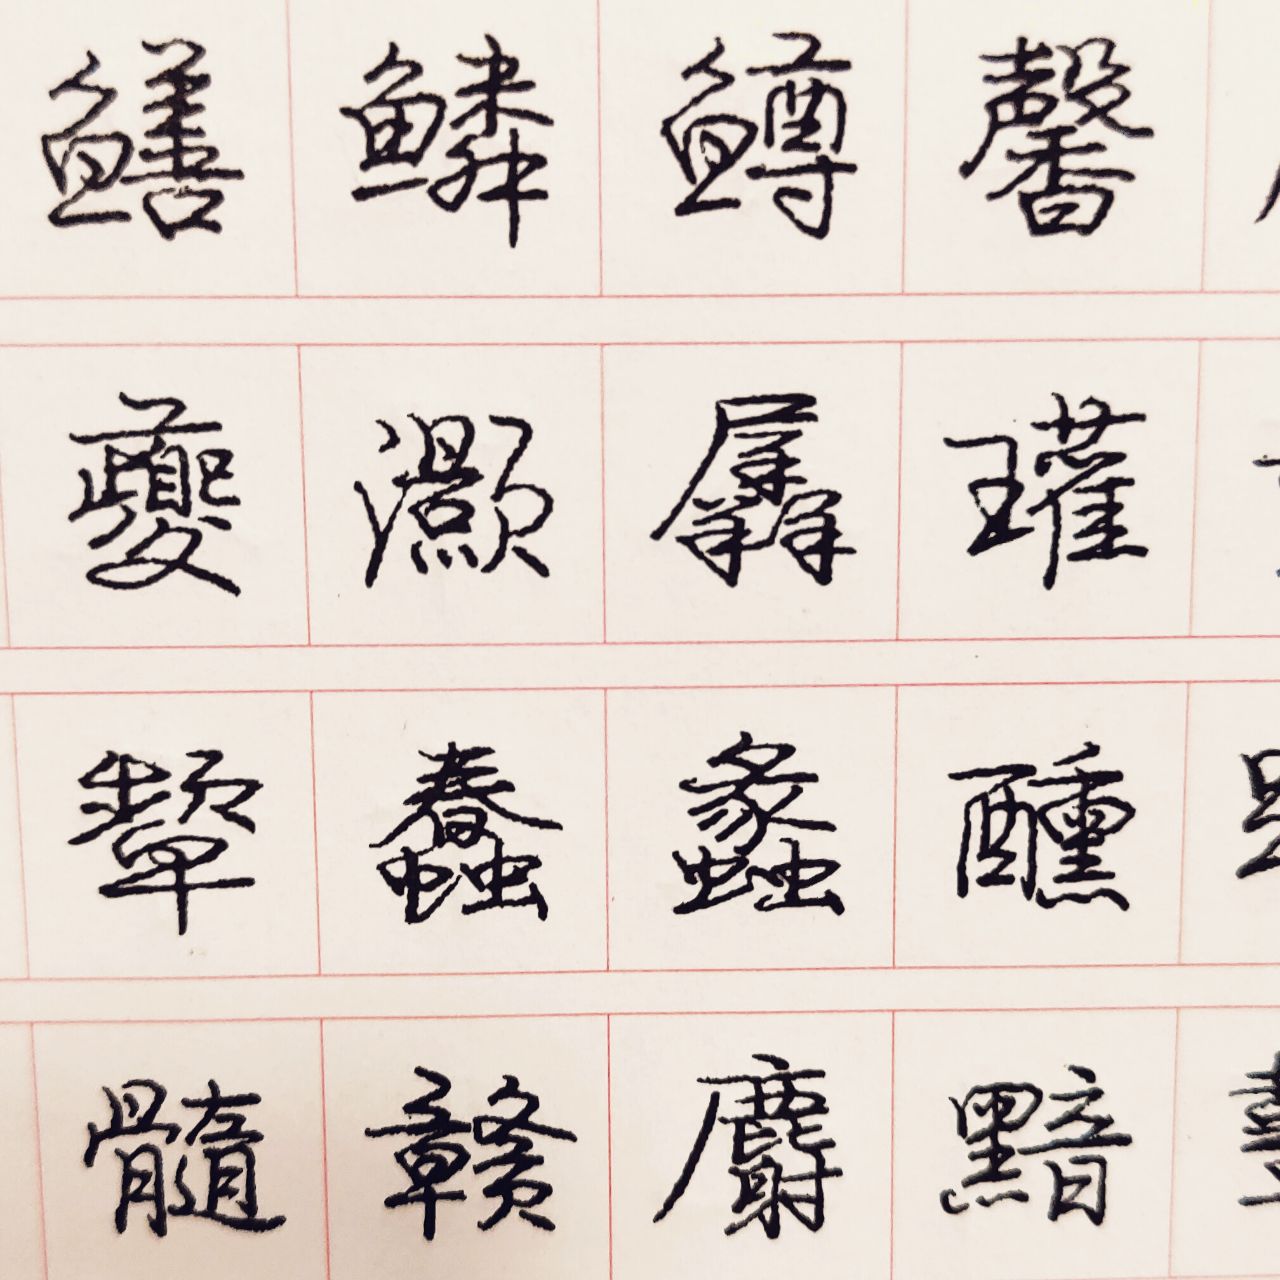 鳝鳞鳟馨
夔灏羼瓘
颦蠢蠡醺
髓赣麝黯